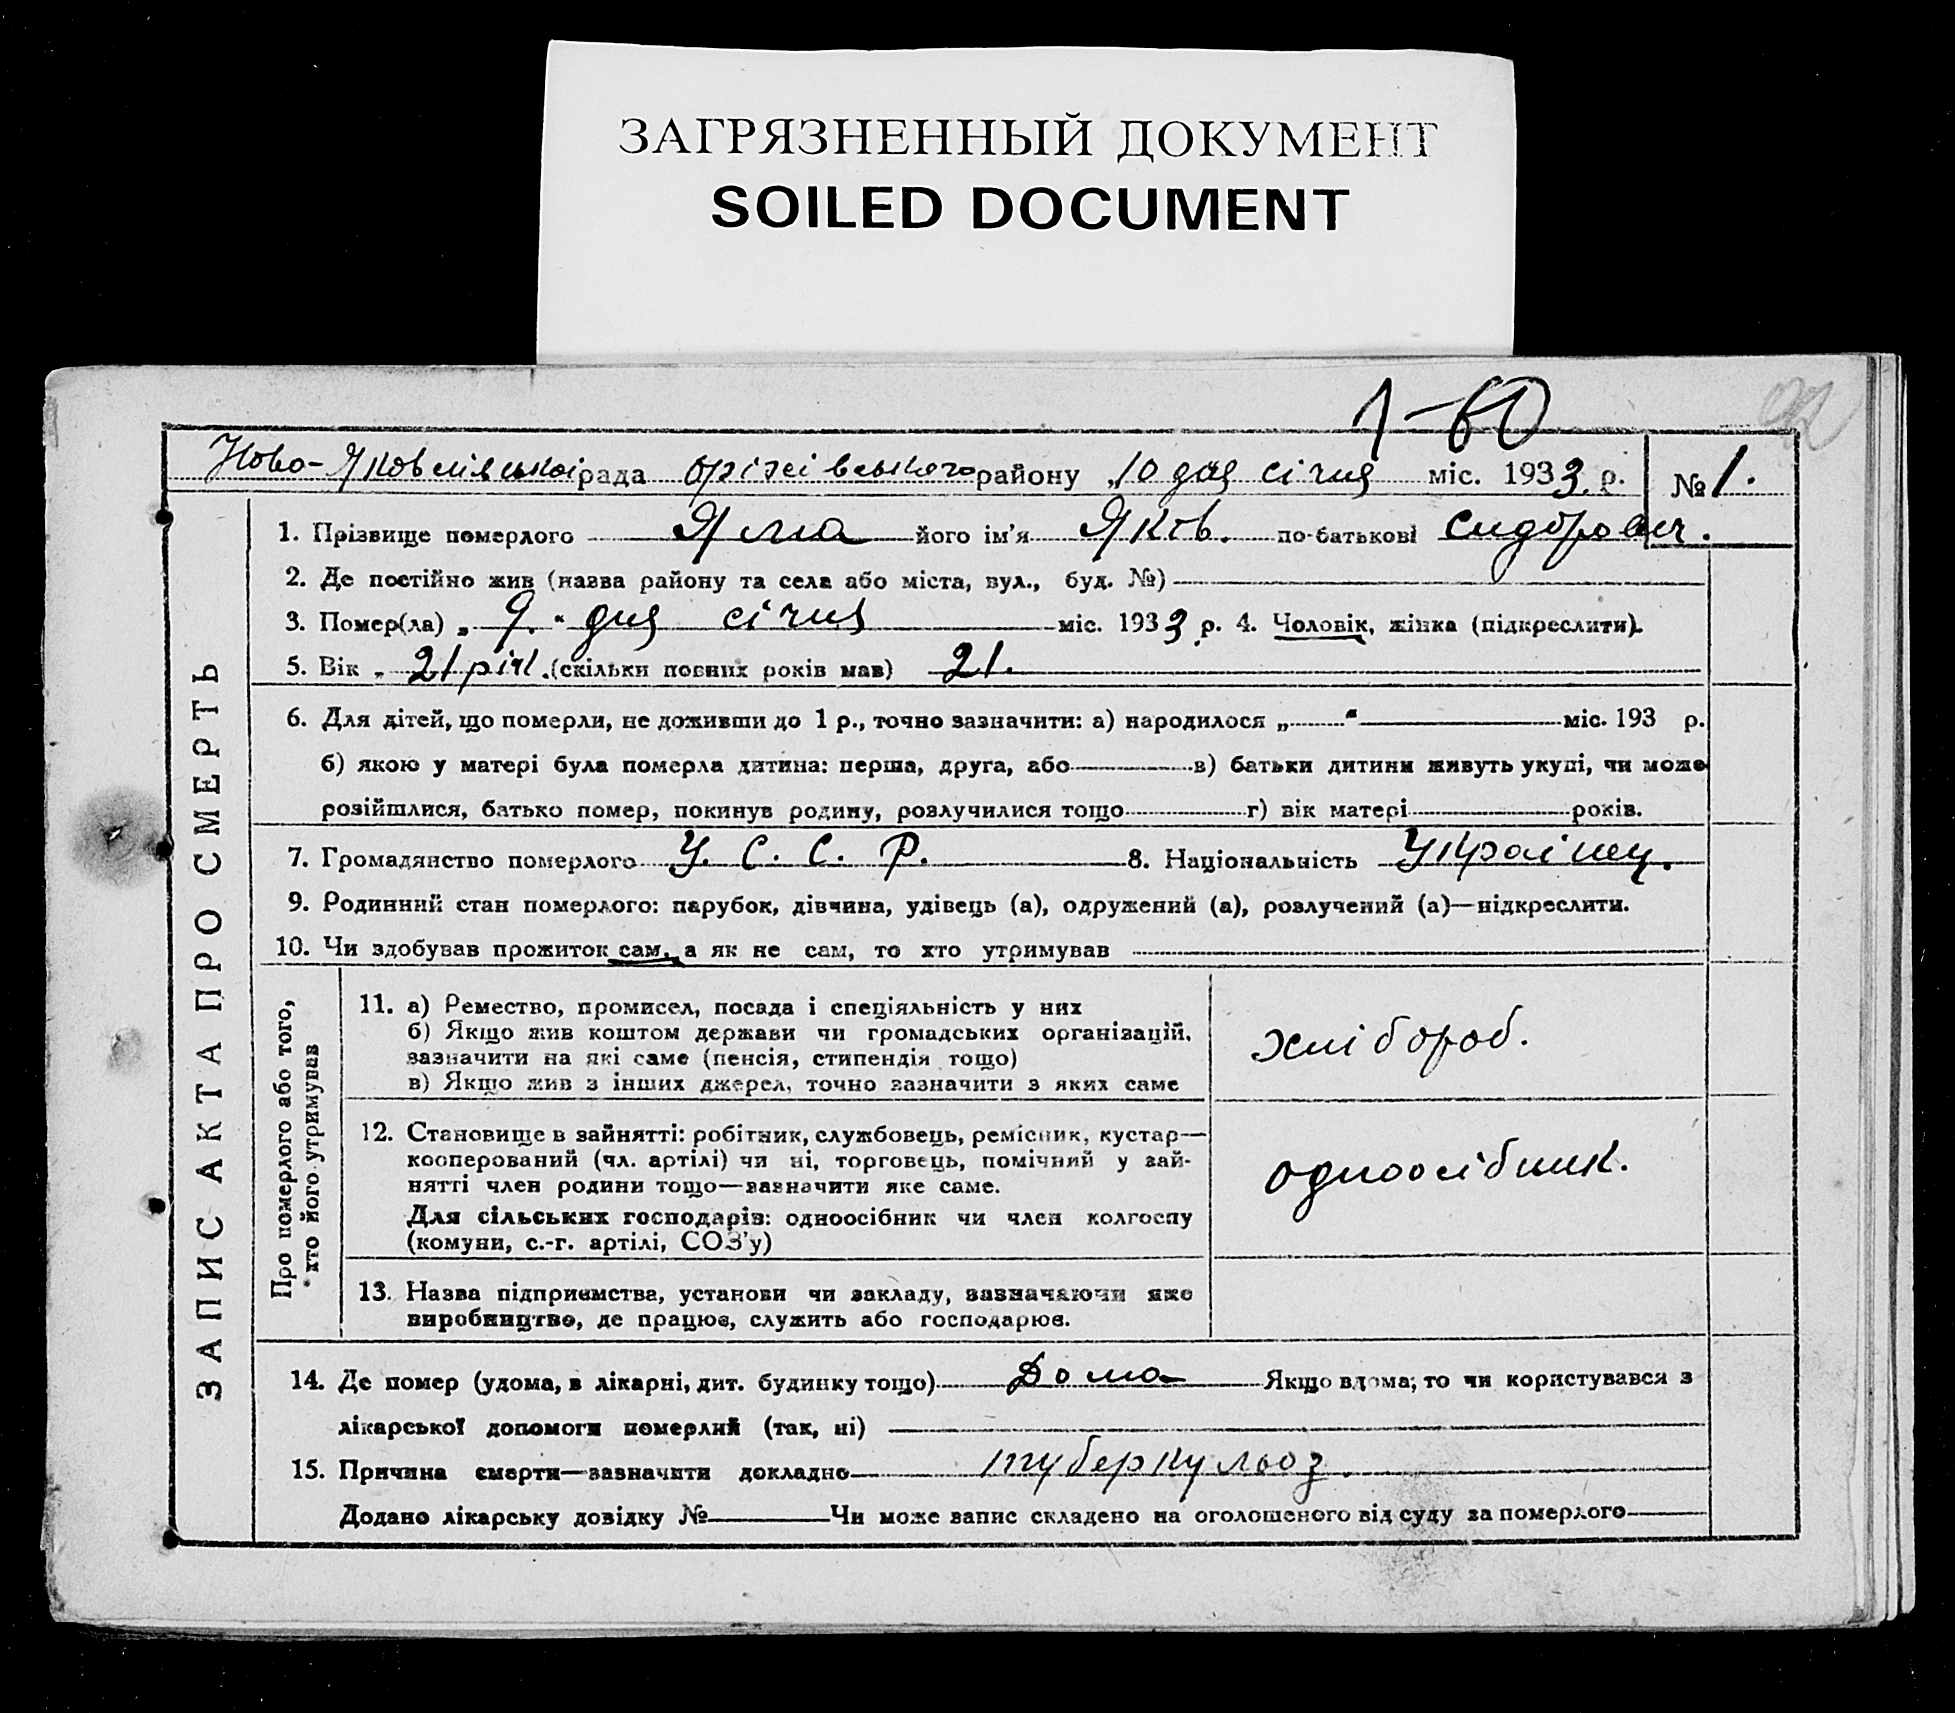 ЗАГРЯЗНЕННЫЙ ДОКУМЕНТ
SOILED DOCUMENT
1-60
92
Ново-Яковлівської рада Оріхівського району „10 дня січня міс. 1933 р. № 1.
ЗАПИС АКТА ПРО СМЕРТЬ
1. Прізвище померлого Яма його ім'я Яків. по-батькові Сидорович.
2. Де постійно жив (назва району та села або міста, вул., буд. №)
3. Помер(ла) „9." дня січня міс. 1933 р. 4. Чоловік, жінка (підкреслити).
5. Вік „21 річ. (скільки повних років мав) 21.
6. Для дітей, що померли, не доживши до 1 р., точно зазначити: а) народилося „ " міс. 193 р.
б) якою у матері була померла дитина: перша, друга, або в) батьки дитини живуть укупі, чи може
розійшлися, батько помер, покинув родину, розлучилися тощо г) вік матері років.
7. Громадянство померлого У. С. С. Р. 8. Національність Українец.
9. Родинний стан померлого: парубок, дівчина, удівець (а), одружений (а), розлучений (а)—підкреслити.
10. Чи здобував прожиток сам, а як не сам, то хто утримував
Про померлого або того,
хто його утримував
11. а) Ремество, промисел, посада і спеціяльність у них
б) Якщо жив коштом держави чи громадських організацій,
зазначити на які саме (пенсія, стипендія тощо)
в) Якщо жив з інших джерел, точно зазначити з яких саме
хлібороб.
12. Становище в зайнятті: робітник, службовець, ремісник, кустар—
кооперований (чл. артілі) чи ні, торговець, помічний у зай-
нятті член родини тощо—зазначити яке саме.
Для сільських господарів: одноосібник чи член колгоспу
(комуни, с.-г. артілі, СОЗ'у)
одноосібник.
13. Назва підприємства, установи чи закладу, зазначаючи яке
виробництво, де працює, служить або господарює.
14. Де помер (удома, в лікарні, дит. будинку тощо) Дома Якщо вдома, то чи користувався з
лікарської допомоги померлий (так, ні)
15. Причина смерти—зазначити докладно туберкульоз.
Додано лікарську довідку № Чи може запис складено на оголошеного від суду за померлого